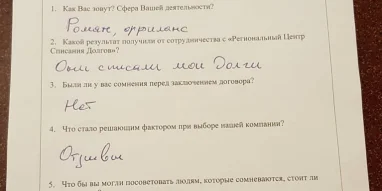 1. Как Вас зовут? Сфера Вашей деятельности?
Роман, фриланс
2. Какой результат получили от сотрудничества с «Региональный Центр
Списания Долгов»?
Они списали мои Долги
3. Были ли у вас сомнения перед заключением договора?
Нет
4. Что стало решающим фактором при выборе нашей компании?
Отзывы
5. Что бы вы могли посоветовать людям, которые сомневаются, стоит ли